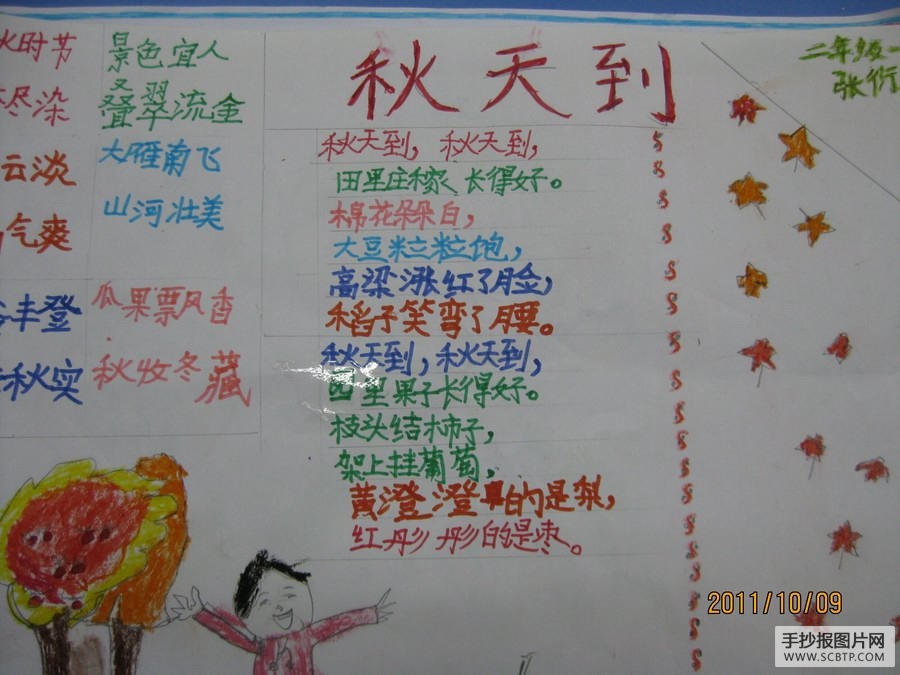 秋天到
二年级一
张衍
时节
尽染
云淡
气爽
丰登
秋实
景色宜人
叠翠流金
大雁南飞
山河壮美
瓜果飘香
秋收冬藏
秋天到，秋天到，
田里庄稼长得好。
棉花朵朵白，
大豆粒粒饱，
高梁涨红了脸，
稻子笑弯了腰。
秋天到，秋天到，
园里果子长得好。
枝头结柿子，
架上挂葡萄，
黄澄澄的是梨，
红彤彤的是枣。
2011/10/09
手抄报图片网
WWW.SCBTP.COM